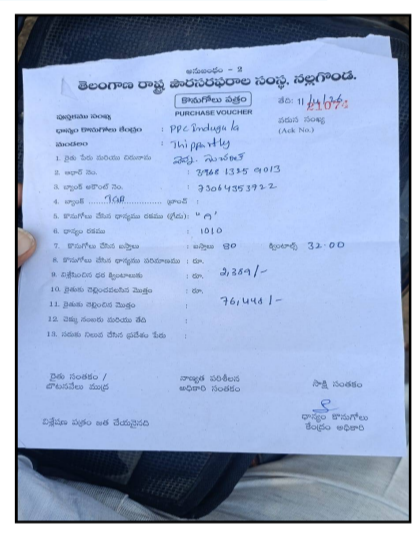 అనుబంధం - 2
తెలంగాణ రాష్ట్ర పౌరసరఫరాల సంస్థ, నల్లగొండ.
కొనుగోలు పత్రం
PURCHASE VOUCHER
తేది: 11
పుస్తకము సంఖ్య
వరుస సంఖ్య
(Ack No.)
ధాన్యం కొనుగోలు కేంద్రం : PPC Indugula
మండలం : Thipparthy
1. రైతు పేరు మరియు చిరునామ
2. ఆధార్ నెం. : 3968 1325 9013
3. బ్యాంక్ అకౌంట్ నెం. : 73064353922
4. బ్యాంక్ బ్రాంచ్ :
5. కొనుగోలు చేసిన ధాన్యము రకము (గ్రేడు): "A"
6. ధాన్యం రకము : 1010
7. కొనుగోలు చేసిన బస్తాలు : బస్తాలు 80 క్వింటాల్స్ 32.00
8. కొనుగోలు చేసిన ధాన్యము పరిమాణము : రూ.
9. విశ్లేషించిన ధర క్వింటాలుకు : రూ. 2,389/-
10. రైతుకు చెల్లించవలసిన మొత్తం : రూ.
11. రైతుకు చెల్లించిన మొత్తం : 76,448/-
12. చెక్కు నంబరు మరియు తేది :
13. సరుకు నిలువ చేసిన ప్రదేశం పేరు :
రైతు సంతకం /
బొటనవేలు ముద్ర
నాణ్యత పరిశీలన
అధికారి సంతకం
సాక్షి సంతకం
విశ్లేషణ పత్రం జత చేయనైనది
ధాన్యం కొనుగోలు
కేంద్రం అధికారి